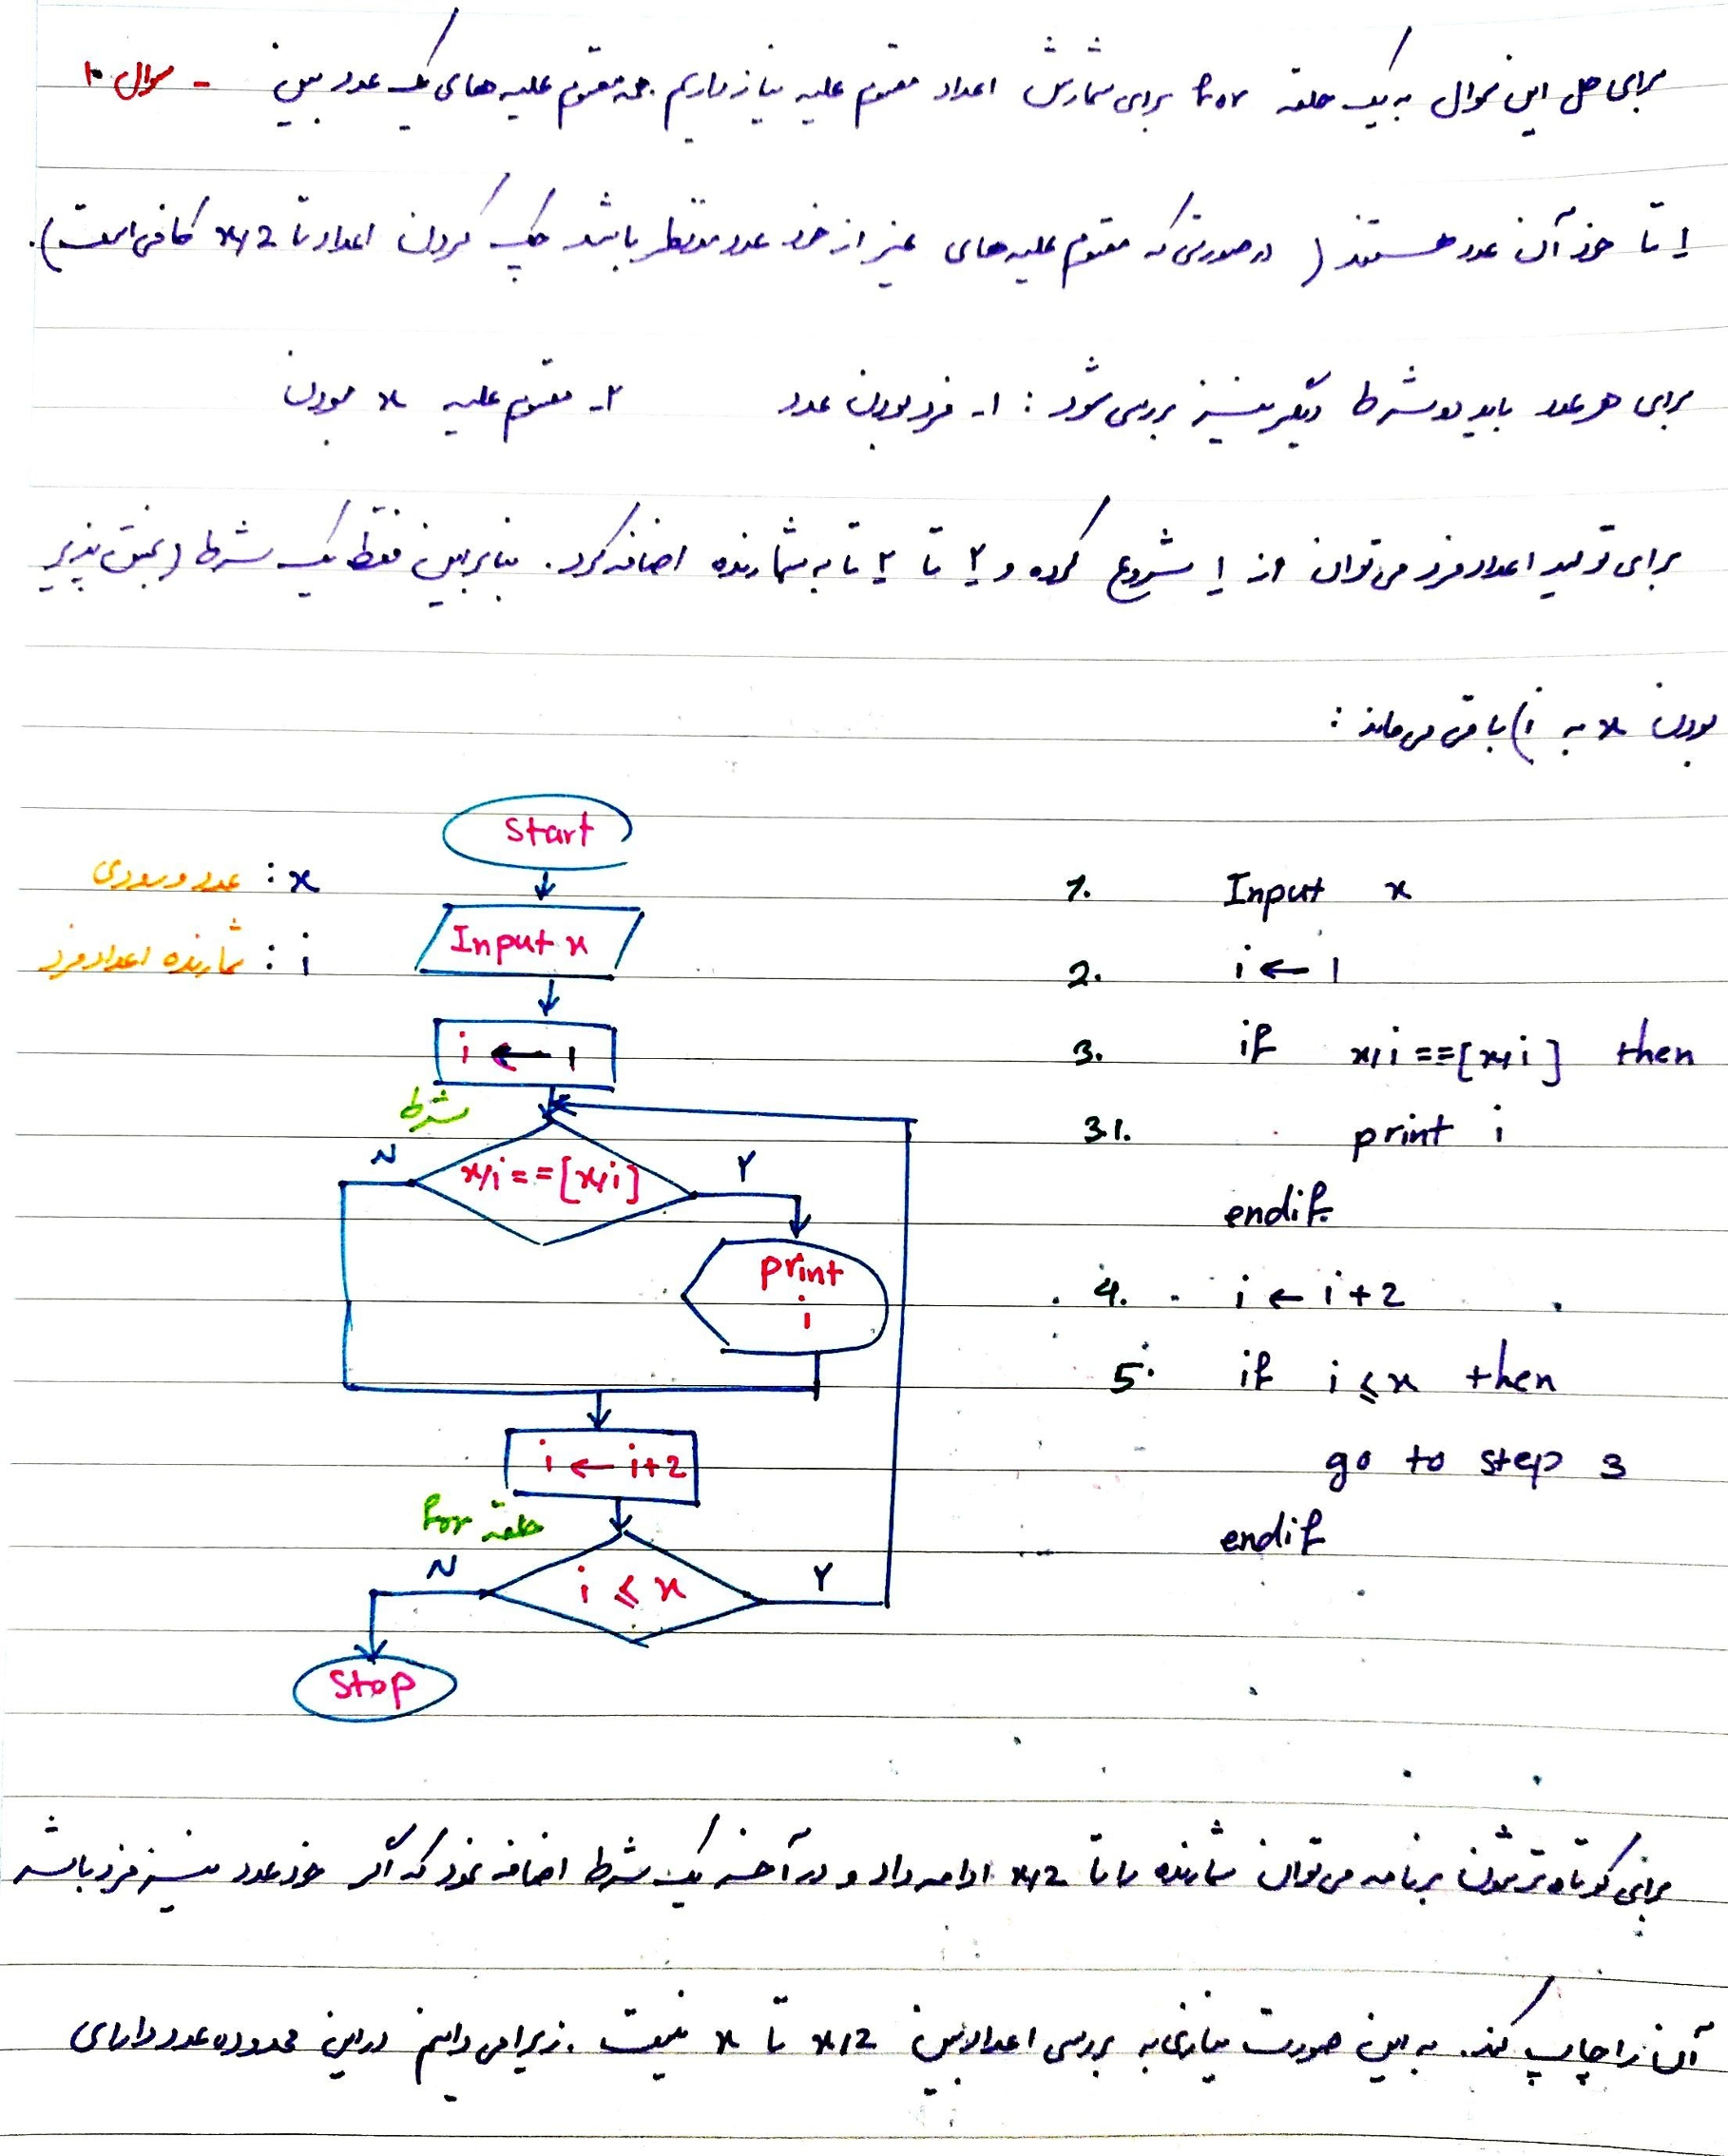 سوال ۱۰ - برای حل این سوال به یک حلقه for برای شمارش اعداد مقسوم علیه نیاز داریم. همه مقسوم علیه های یک عدد بین
۱ تا خود آن عدد هستند (در صورتی که مقسوم علیه های غیر از خود عدد مدنظر باشد چک کردن اعداد تا x/2 کافی است).
برای هر عدد باید دو شرط دیگر نیز بررسی شود: ۱- فرد بودن عدد ۲- مقسوم علیه x بودن
برای تولید اعداد فرد می توان از ۱ شروع کرده و ۲ تا ۲ تا به شمارنده اضافه کرد. بنابراین فقط یک شرط (بخش پذیر
بودن x به i) باقی می ماند:
Start
x: عدد ورودی
Input x
i: شمارنده اعداد فرد
i ← 1
شرط
N x/i==[x/i] Y
print
i
i ← i+2
حلقه for
N i ≤ x Y
Stop
1. Input x
2. i ← 1
3. if x/i==[x/i] then
3.1. print i
endif.
4. i ← i+2
5. if i ≤ x then
go to step 3
endif
برای کوتاه تر شدن برنامه می توان شمارنده را تا x/2 ادامه داد و در آخر یک شرط اضافه نمود که اگر خود عدد نیز فرد باشد
آن را چاپ کند. به این صورت نیازی به بررسی اعداد بین x/2 تا x نیست. زیرا می دانیم در این محدوده عدد دارای